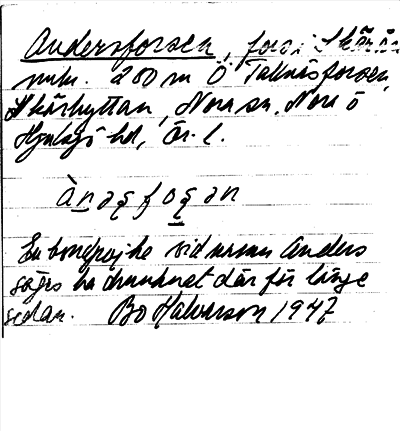 Andersforsen, fors i Skärån
200 m Ö Tallnäsforsen,
Skärhyttan, Nora sn, Nora o
Hjulsjö hd, Ör. l.
En bondpojke vid namn Anders
sägs ha drunknat där för länge
sedan. Bo Halvarson 1947